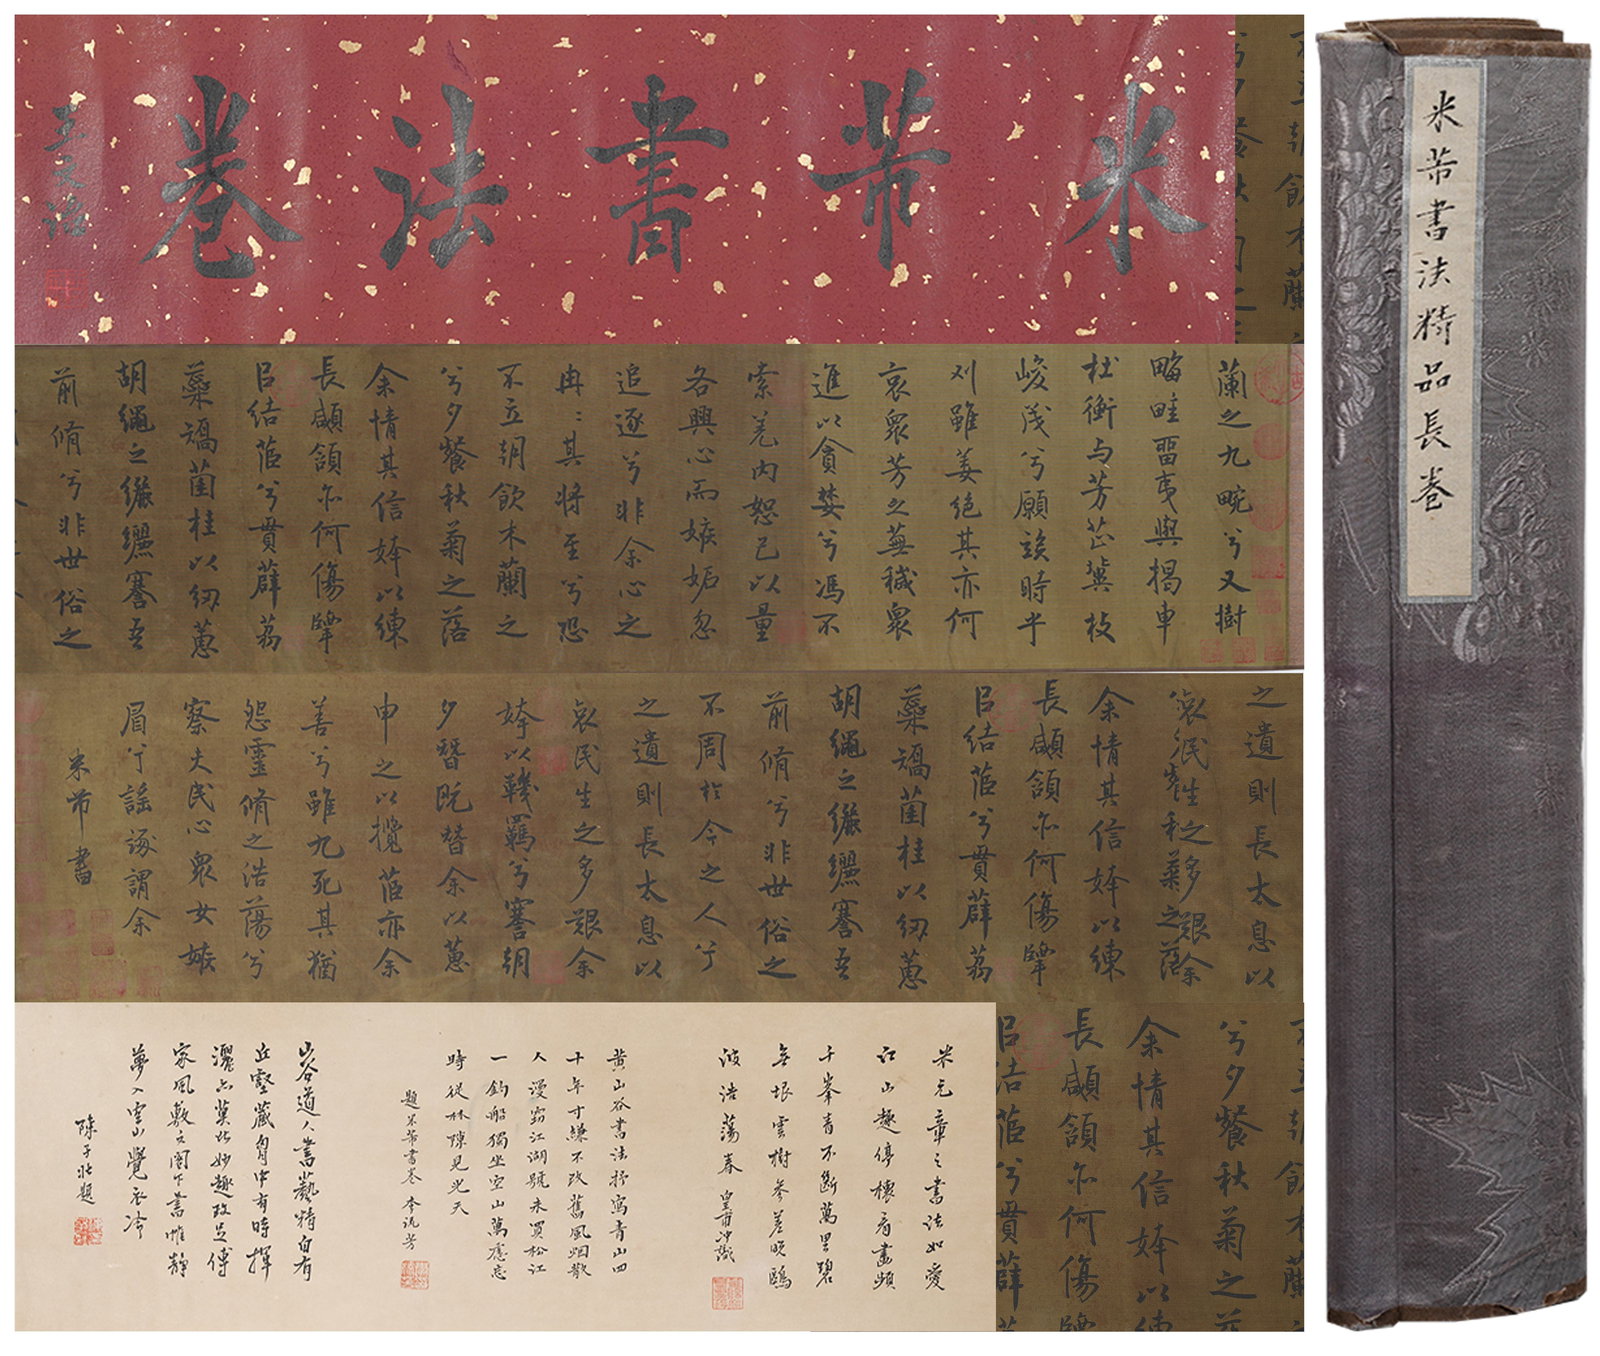 米芾書法卷
王文治
米芾書法精品長卷
蘭之九畹兮又樹
畮畦畱夷與揭車
杜衡与芳芷冀枝
峻茂兮願竢時乎
刈雖萎絶其亦何
哀衆芳之蕪穢衆
進以貪婪兮馮不
索羌内恕己以量
各興心而嫉妬忽
追逐兮非余心之
冉冉其將至兮恐
不立朝飲木蘭之
兮夕餐秋菊之落
余情其信姱以練
長顑頷亦何傷擥
以結茝兮貫薜荔
蘂矯菌桂以紉蕙
胡繩之纚纚謇吾
前脩兮非世俗之
之遺則長太息以
余情其信姱以練
長顑頷亦何傷擥
以結茝兮貫薜荔
蘂矯菌桂以紉蕙
胡繩之纚纚謇吾
前脩兮非世俗之
不周於今之人兮
之遺則長太息以
哀民生之多艱余
姱以鞿羈兮謇朝
夕替既替余以蕙
申之以攬茝亦余
善兮雖九死其猶
怨靈脩之浩蕩兮
察夫民心衆女嫉
眉兮謠諑謂余
米芾書
兮夕餐秋菊之落
余情其信姱以練
長顑頷亦何傷
以結茝兮貫薜
米元章之書法如愛
江山趣停橈看畫頻
千峯青不斷萬里碧
無垠雲樹參差晚鷗
波浩蕩春 皇甫冲識
黄山谷書法抒寫青山四
十年寸縑不改舊風烟散
人漫窮江湖號未買松江
一釣船獨坐空山萬慮忘
時從林隙見光天
題米芾書卷 李流芳
山谷道人書藝精自有
丘壑藏胷中有時揮
灑亦莫比妙趣改足傅
家風敷文閣下書帷静
夢入雲山覺衣冷
陳子壯題